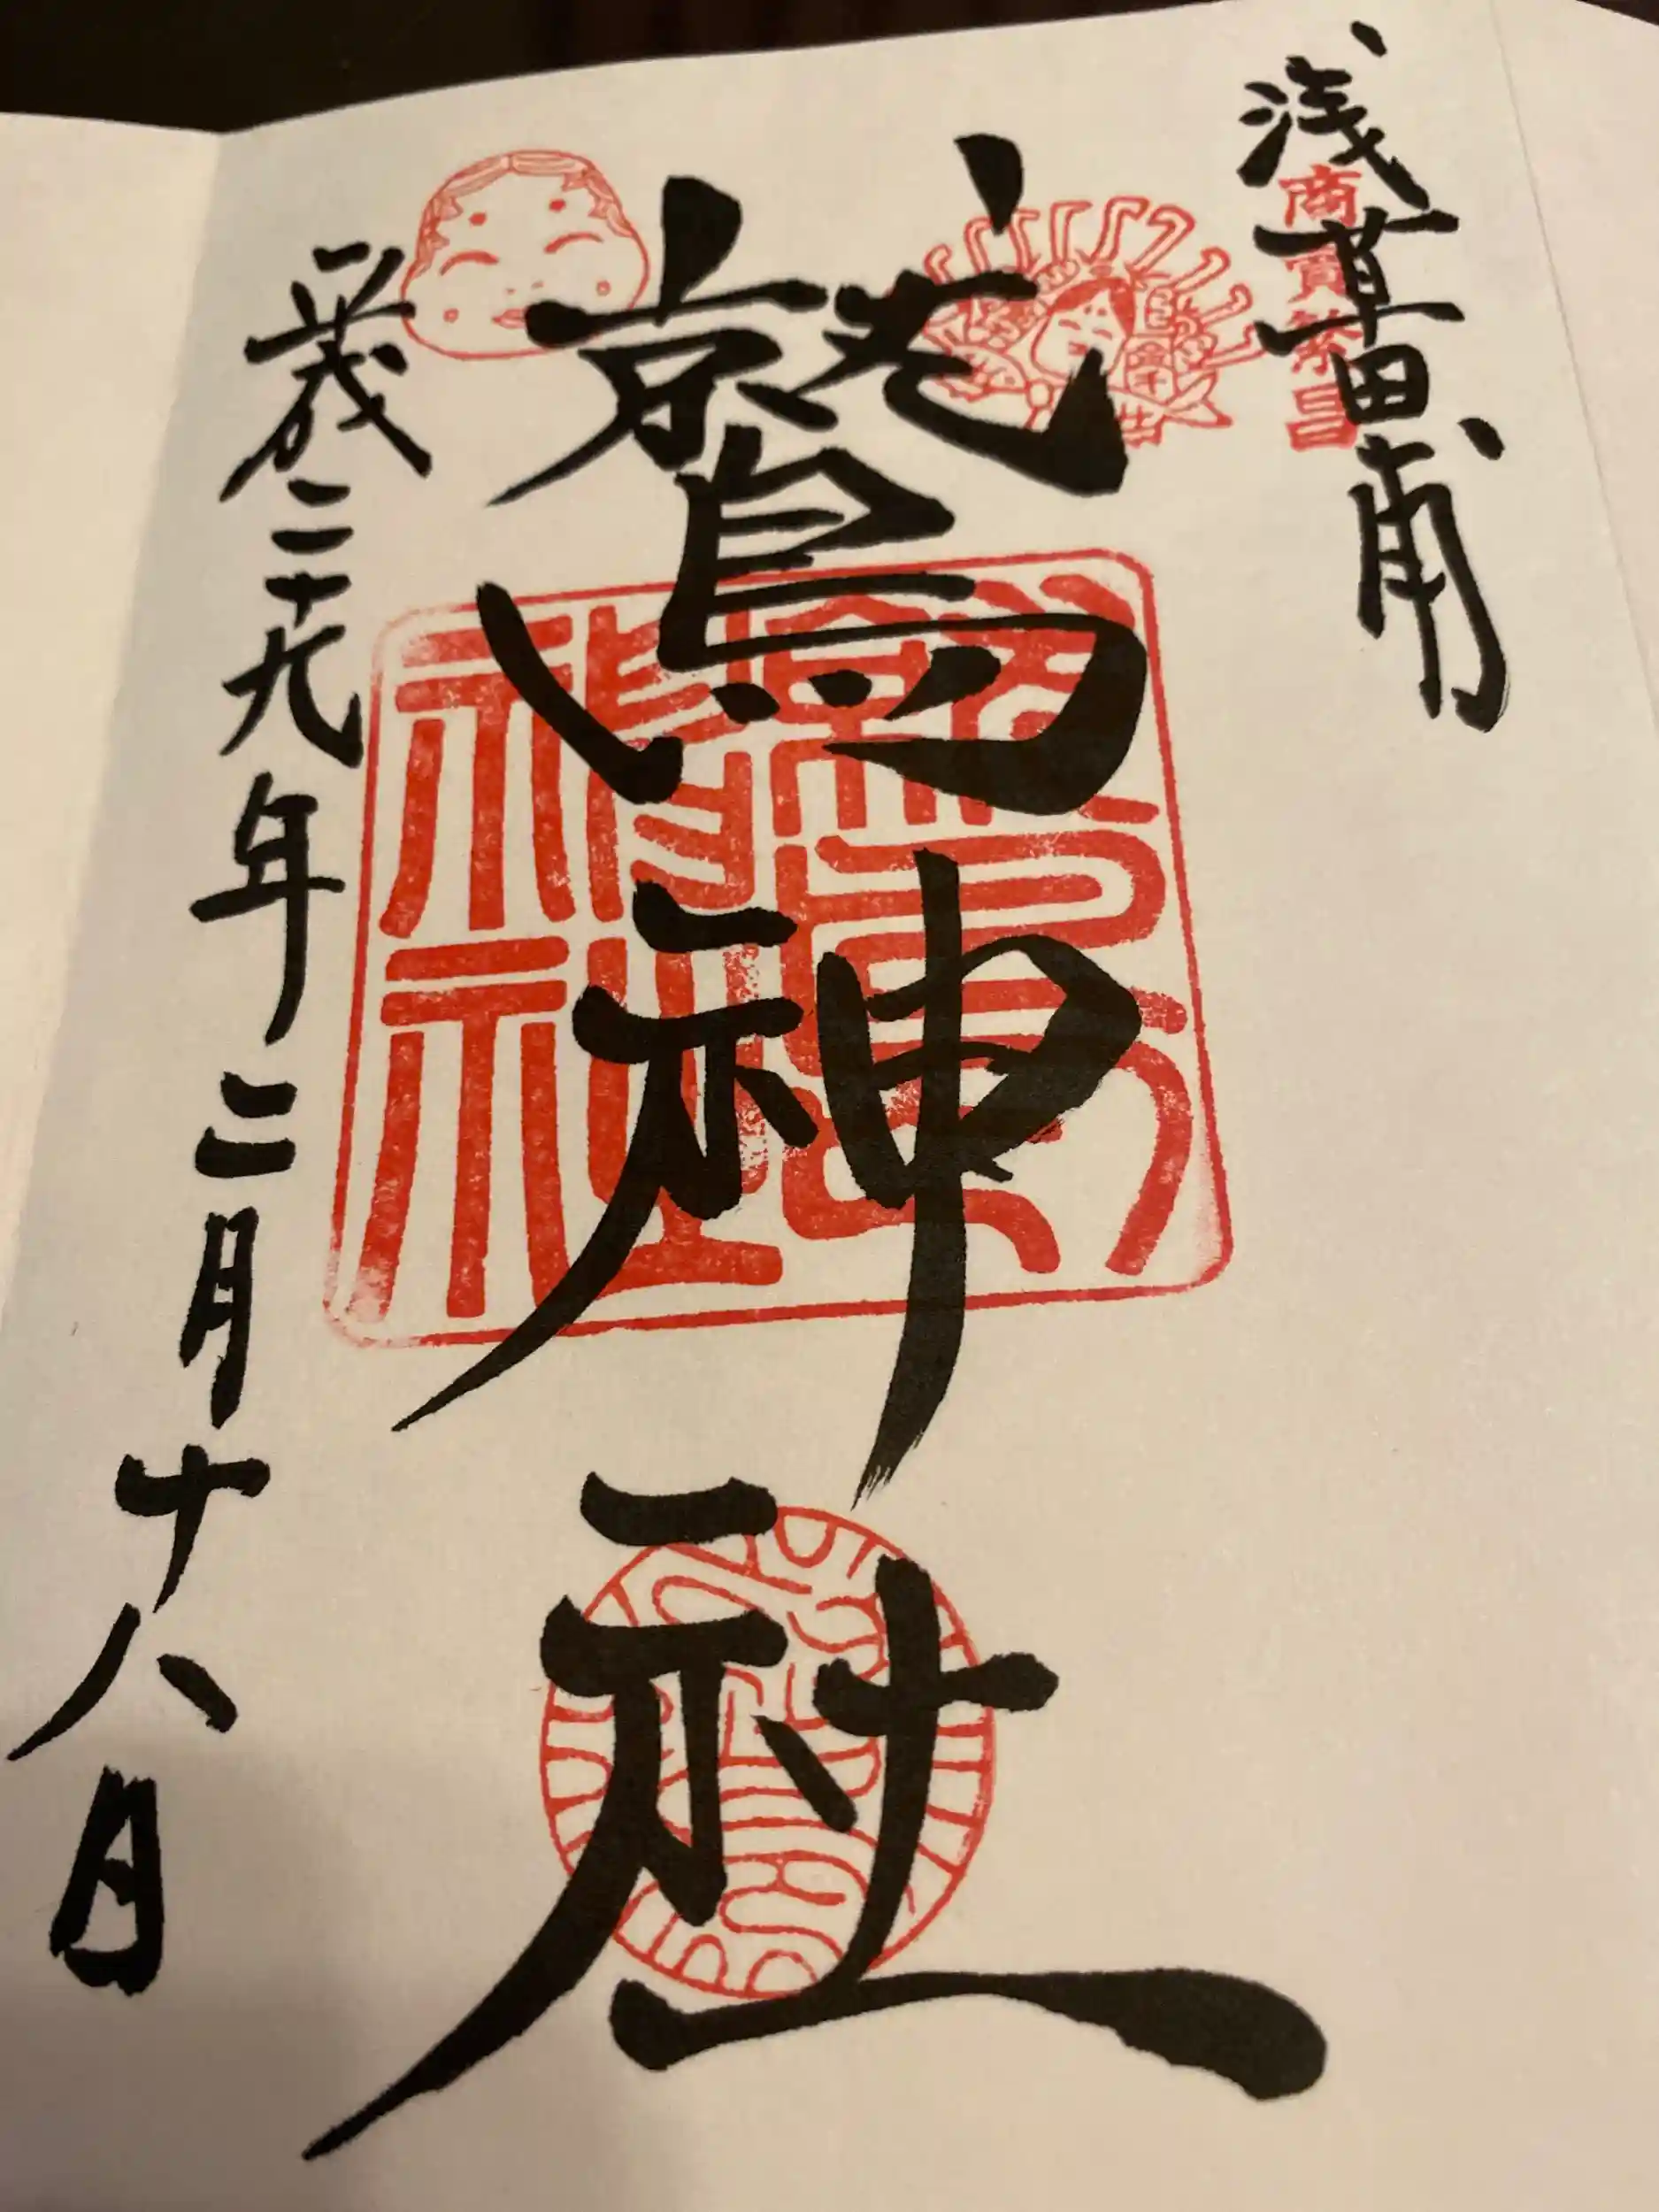 浅草田甫
商売繁昌
鷲神社
鷲神社
平成二十九年二月十八日